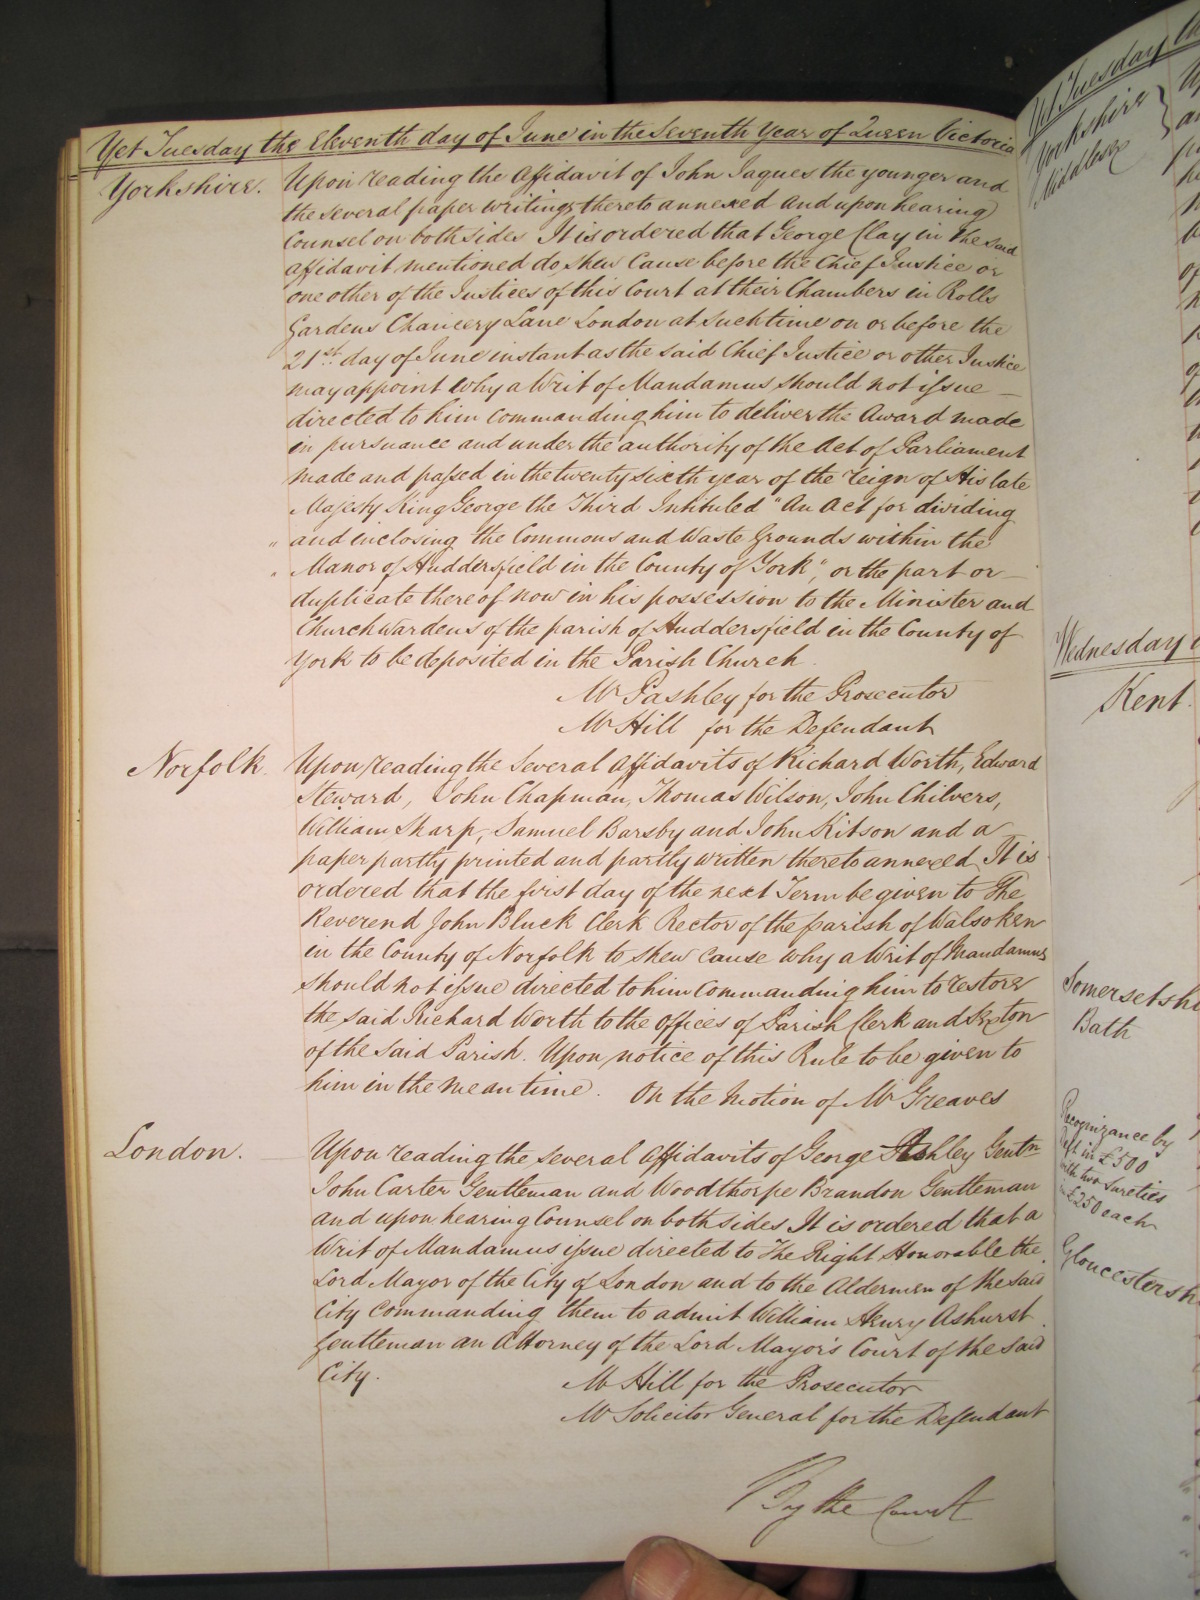 Yet Tuesday the Eleventh day of June in the Seventh Year of Queen Victoria
Yorkshire.
Upon reading the Affidavit of John Jaques the younger and
the several paper writings thereto annexed and upon hearing
Counsel on both sides It is ordered that George Clay in the said
affidavit mentioned do shew Cause before the Chief Justice or
one other of the Justices of this Court at their Chambers in Rolls
Gardens Chancery Lane London at such time on or before the
21st. day of June instant as the said Chief Justice or other Justice
may appoint Why a Writ of Mandamus should not issue
directed to him commanding him to deliver the Award made
in pursuance and under the authority of the Act of Parliament
made and passed in the twenty sixth year of the reign of His late
Majesty King George the Third Intituled "An Act for dividing
" and inclosing the Commons and Waste Grounds within the
" Manor of Huddersfield in the County of York", or the part or
duplicate thereof now in his possession to the Minister and
Churchwardens of the parish of Huddersfield in the County of
York to be deposited in the Parish Church.
Mr Pashley for the Prosecutor
Mr Hill for the Defendant
Norfolk.
Upon reading the Several Affidavits of Richard Worth, Edward
Steward, John Chapman, Thomas Wilson, John Chilvers,
William Sharp, Samuel Barsby and John Kitson and a
paper partly printed and partly written thereto annexed It is
ordered that the first day of the next Term be given to The
Reverend John Bluck Clerk Rector of the parish of Walsoken
in the County of Norfolk to shew cause why a Writ of Mandamus
should not issue directed to him Commanding him to restore
the said Richard Worth to the Offices of Parish Clerk and Sexton
of the said Parish. Upon notice of this Rule to be given to
him in the mean time. On the Motion of Mr Greaves
London.
Upon reading the several Affidavits of George Ashley Gentn
John Carter Gentleman and Woodthorpe Brandon Gentleman
and upon hearing Counsel on both sides It is ordered that a
Writ of Mandamus issue directed to The Right Honorable the
Lord Mayor of the City of London and to the Aldermen of the said
City commanding them to admit William Henry Ashurst
Gentleman an Attorney of the Lord Mayor's Court of the said
City.
Mr Hill for the Prosecutor
Mr Solicitor General for the Defendant
By the Court
Yet Tuesday the
Yorkshire
Middlesex
Wednesday
Kent.
Somersetshi
Bath
Recognizance by
Deft in £500
with two sureties
in £250 each
Gloucestersh